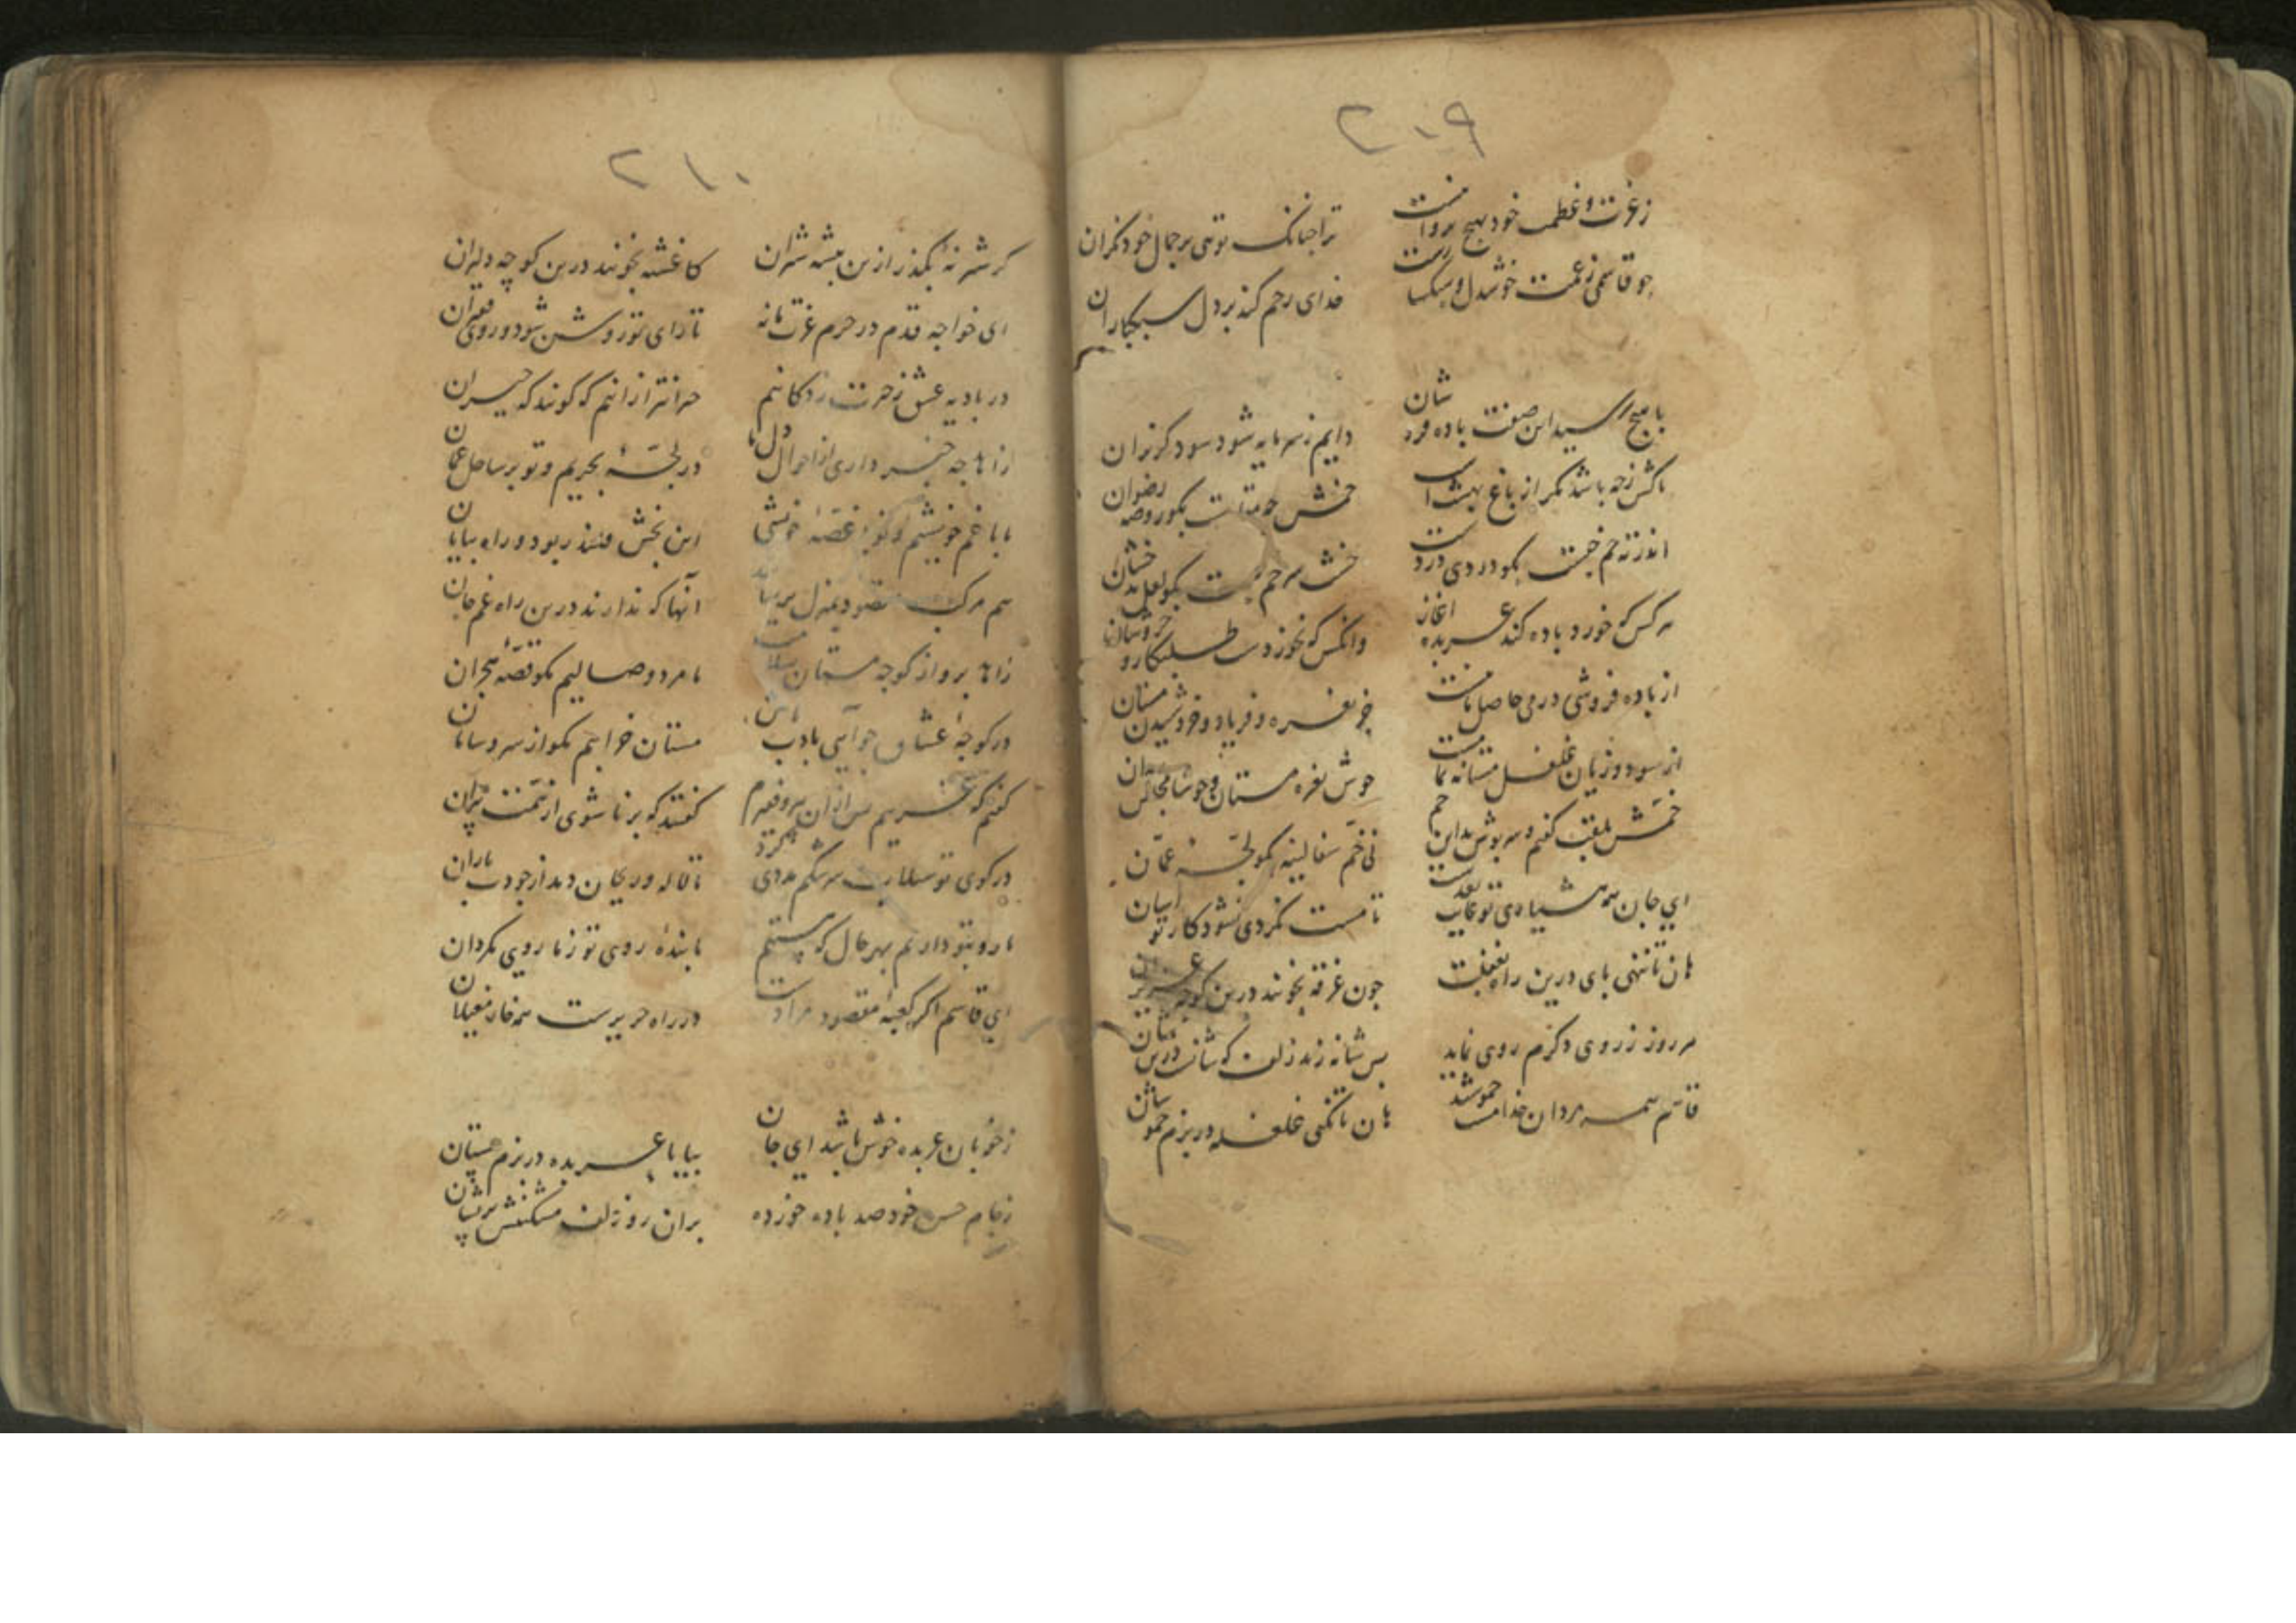 ۲۰۹
ز عزت و عظمت خود هیچ پروا نیست
ترا چنانکه تویی بر جمال خود نکران
چو قاسمی ز غمت خوشدل و
خدای رحم کند بر دل سبکباران
با هیچ رسید این صفت باده
دایم ز سر مایه شود سود
باکش زچه باشد مکر از باغ بهشت است
خمش جه بکو روضه رضوان
اندر ته خم چیست بکو دردی دردست
خشت سر خم چیست بکو لعل بدخشان
هر کس که خورد باده کند عربده اغاز
وانکس که نخورد دست طلبکار و خروشان
از باده فروشی در می حاصل ما نیست
جز نعره و فریاد و خروشیدن مستان
از سود و زیان غلغل مستانه
خوش نعره مستان و خوشا مجلس
خمش بلقب کفتم و سربوش بداین خم
نی خم سفالینه بکو لجهٔ عمان
ای جان همه هشیاری تو
تا مست نکردی نشود کار تو اسان
هان تا ننهی بای درین راه بغفلت
جون غرقه بخونند درین کوجه
هر روز ز روی دکرم روی نماید
بس شانه زند زلف
قاسم همه مردان خدا مست خموشند
هان تا نکنی غلغله در بزم خموشان
۲۱۰
کر شیر نهٔ بکذر ازین بیشه شیران
کاغشته بخونند درین کوچه دلیران
ای خواجه قدم در حرم عزت ما نه
تا رای تو روشن شود و روی
در بادیه عشق ز حیرت زدکانیم
حیرانتر از انیم که کویند که حیران
زاهد چه خبر داری از احوال دل ما
در لجّهٔ بحریم و تو بر ساحل عمان
ما با غم خویشیم و تو با غصهٔ خویشی
این بخش قلندر بود و راه بیابان
هم مرکب مقصود بمنزل برسانند
آنها که ندارند درین راه غم جان
زاهد برو از کوچه مستان بسلامت
ما مرد وصالیم مکو قصهٔ هجران
در کوچهٔ عشاق جو آیی بادب باش
مستان خرابیم مکو از سر و سامان
کفتم که غریبم بس ازان پیر و فقیرم
کفتند که برنا شوی از نعمت پیران
در کوی تو سیلاب سرشکم مددی کرد
تا لاله و ریحان دمد از جود بهاران
ما رو بتو داریم بهر حال که هستیم
ما بندهٔ روی تو ز ما روی مکردان
ای قاسم اکر کعبهٔ مقصود مرادست
در راه حریرست همه خار مغیلان
ز خوبان عربده خوش باشد ای جان
بیا با عربده در بزم مستان
ز جام حسن خود صد باده خورده
بران رو زلف مشکینش پریشان